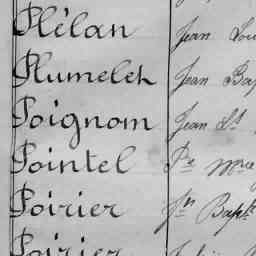 Plélan Jean Lou
Plumeleh Jean Bap
Poignom Jean St
Pointel Pre Mce
Poirier Jn Bapt
Poirier